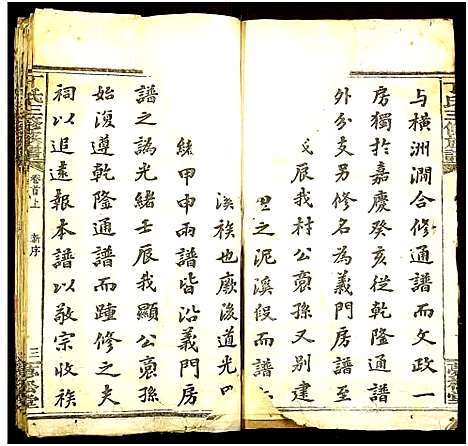 丁氏三修族譜
與橫洲澗合修通譜而文政一
房獨於嘉慶癸亥從乾隆通譜
外分支另修名為義門房譜至
辰我村公裔孫又別建
之泥溪段而譜
溪族也厥後道光
緒甲申兩譜皆沿義門房
譜之譌光緒壬辰我顯公裔孫
始復遵乾隆通譜而踵修之夫
祠以追遠報本譜以敬宗收族
丁氏三修族譜
卷首上
新序
三